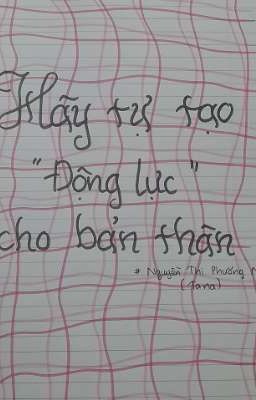 Hãy tự tạo
"Động lực"
cho bản thân
# Nguyễn Thị Phương
(Jana)